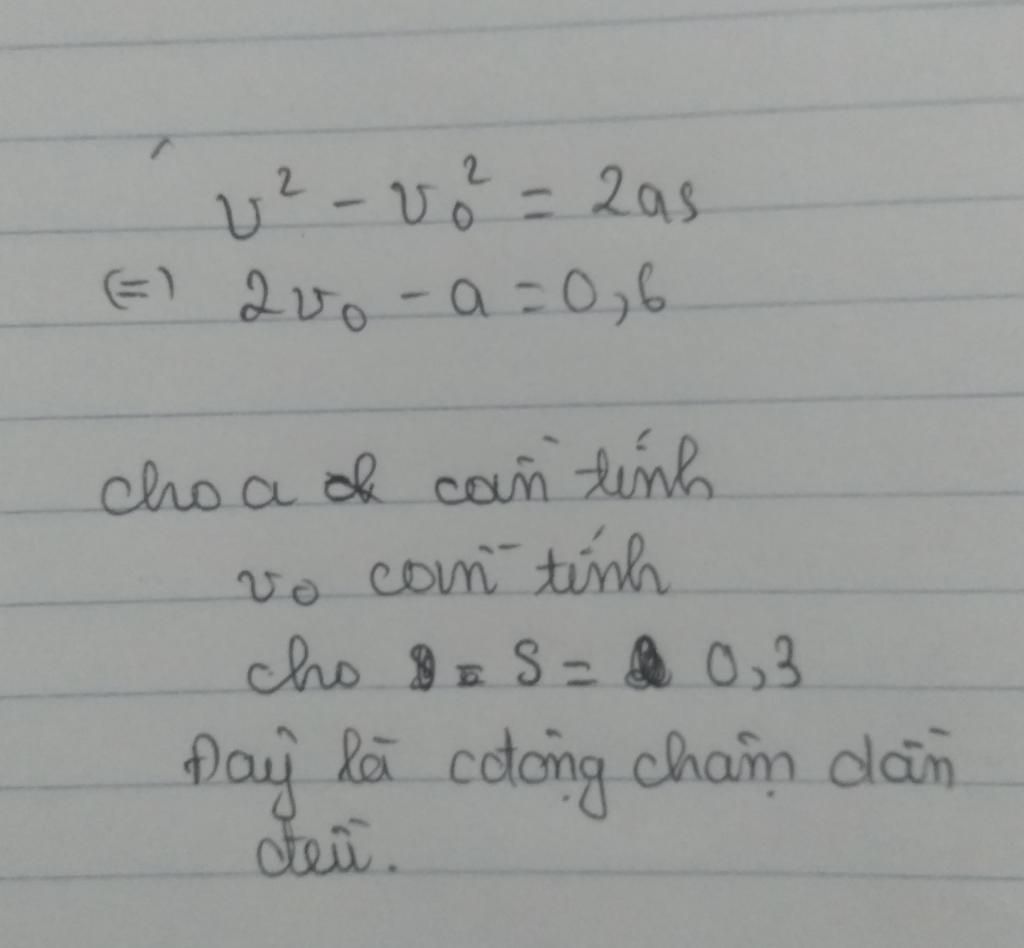 v² - v₀² = 2as
(=) 2v₀ - a = 0,6
cho a cần tính
v₀ cần tính
cho = S = 0,3
Đây là cđộng chậm dần
đều.